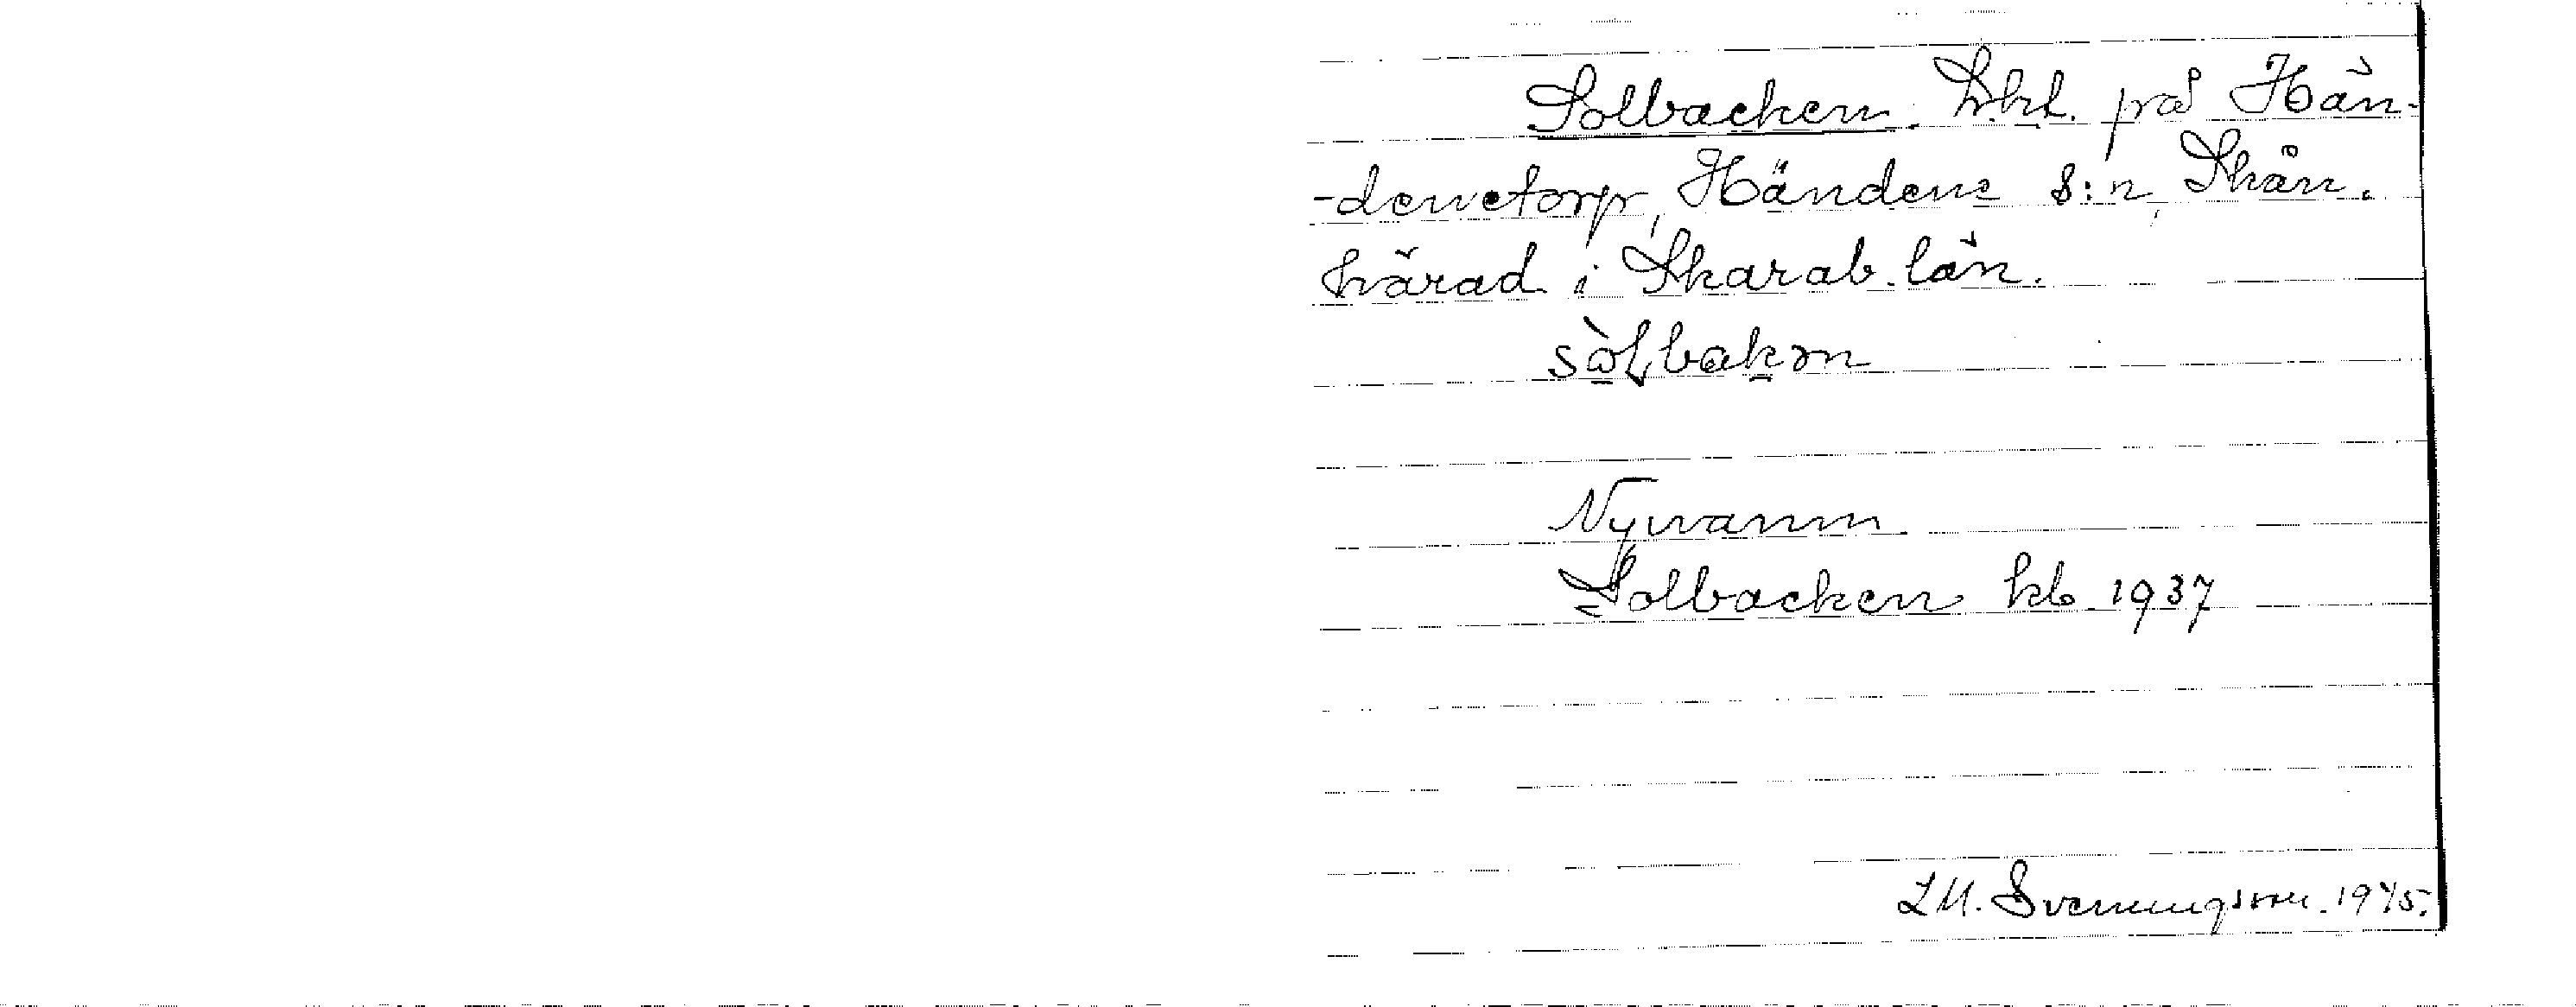 Solbacken. Lht. på Hän-
-denetorp, Händene s:n, Skån.
härad i Skarab. län.
sòlbakən
Nyvann
Solbacken kb 1937
L M. Svenungsson. 1945.